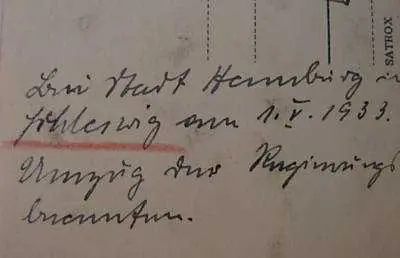 SATROX
Bei Stadt Hamburg in
Schleswig am 1.V.1933.
Umzug der Regierungs
beamten.